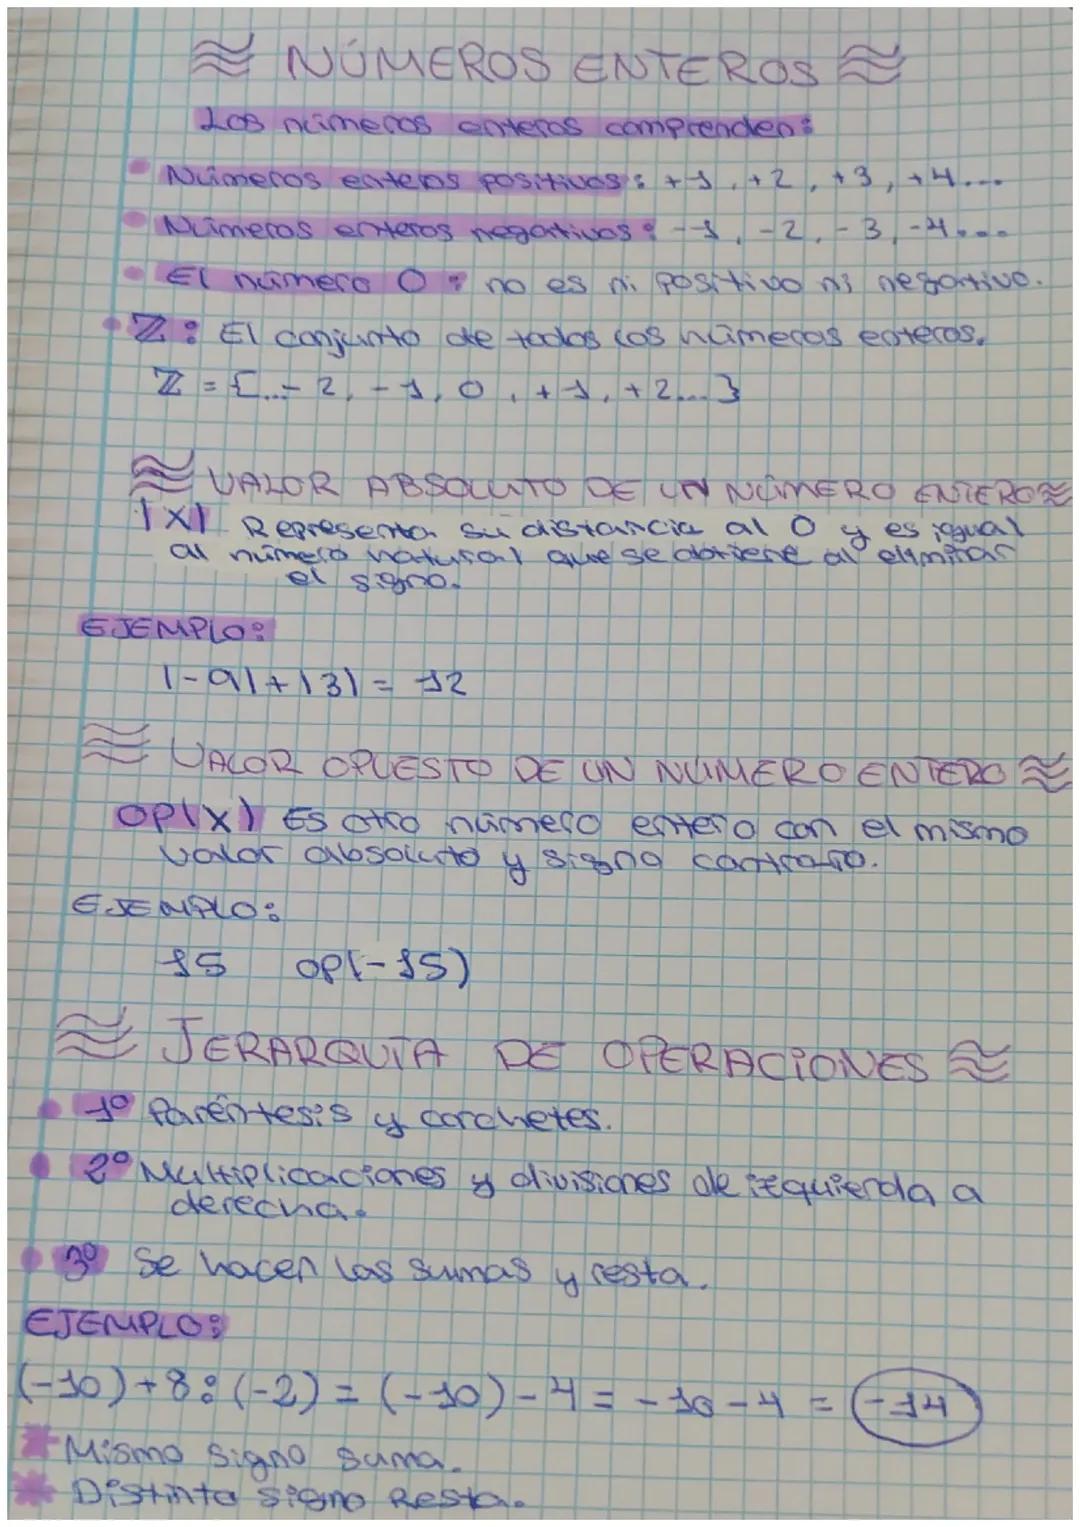 NÚMEROS ENTEROS
Los números enteros comprenden:
Números enteros positivos: +1, +2, +3, +4...
Números enteros negativos: -1, -2, -3, -4....
El número 0: no es ni positivo ni negativo.
Z: El conjunto de todos los números enteros.
Z = {...-2, -1, 0, +1, +2...}
VALOR ABSOLUTO DE UN NÚMERO ENTERO
|x| Representa su distancia al 0 y es igual
al número natural que se obtiene al eliminar
el signo.
EJEMPLO:
|-9|+|3|= 12
VALOR OPUESTO DE UN NÚMERO ENTERO
OP(X) Es otro número entero con el mismo
valor absoluto y signo contrario.
EJEMPLO:
15 op(-15)
JERARQUÍA DE OPERACIONES
1º Paréntesis y corchetes.
2º Multiplicaciones y divisiones de izquierda a
derecha.
3º Se hacen las sumas y resta.
EJEMPLO:
(-10)+8:(-2) = (-10)-4 = -10-4 = -14
Mismo signo suma.
Distinto signo Resta.